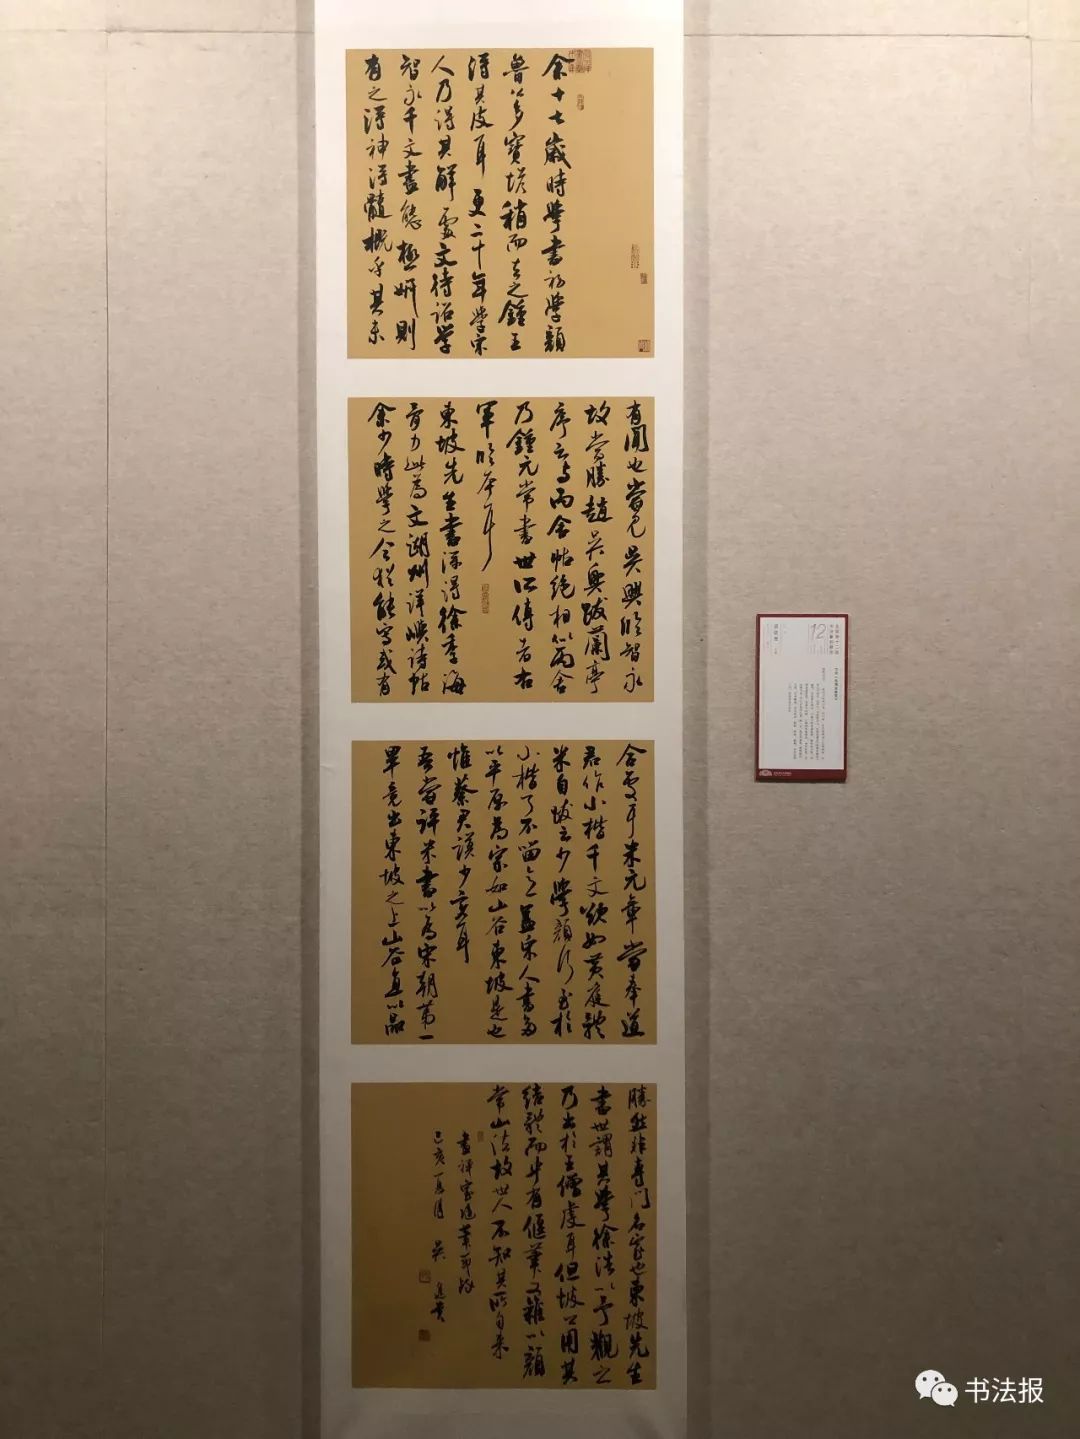 余十七歲時學書初學顏
魯公多寶塔稍而去之鍾王
得其皮耳更二十年學宋
人乃得其解處文待詔學
智永千文盡態極妍則
有之得神得髓概乎其未
有聞也嘗見吳興臨智永
故當勝趙吳興跋蘭亭
序云與丙舍帖絕相似丙舍
乃鍾元常書世所傳者右
軍臨本耳
東坡先生書深得徐季海
骨力此為文湖州洋嶼詩帖
余少時學之今猶能寫或有
合處耳米元章嘗奉道
君作小楷千文欲如黃庭體
米自跋云少學顏行至於
小楷了不留意蓋宋人書多
以平原為宗如山谷東坡是也
惟蔡君謨少變耳
吾嘗評米書以為宋朝第一
畢竟出東坡之上山谷直以品
勝然非專門名家也東坡先生
書世謂其學徐浩以予觀之
乃出於王僧虔耳但坡公用其
結體而中有偃筆又雜以顏
常山法故世人不知其所自來
己亥夏月 吳
12
书法报